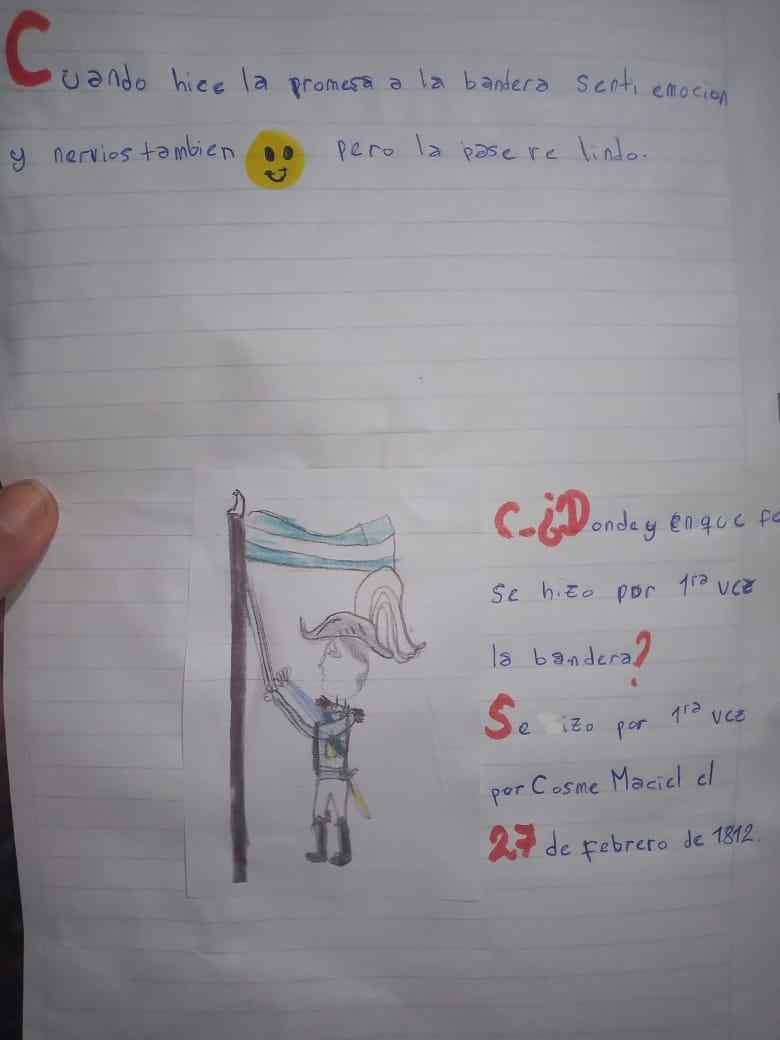 Cuando hice la promesa a la bandera senti emocion
y nervios tambien pero la pase re lindo.
C-¿Donde y en que fe
se hizo por 1ra vez
la bandera?
Se izo por 1ra vez
por Cosme Maciel el
27 de febrero de 1812.